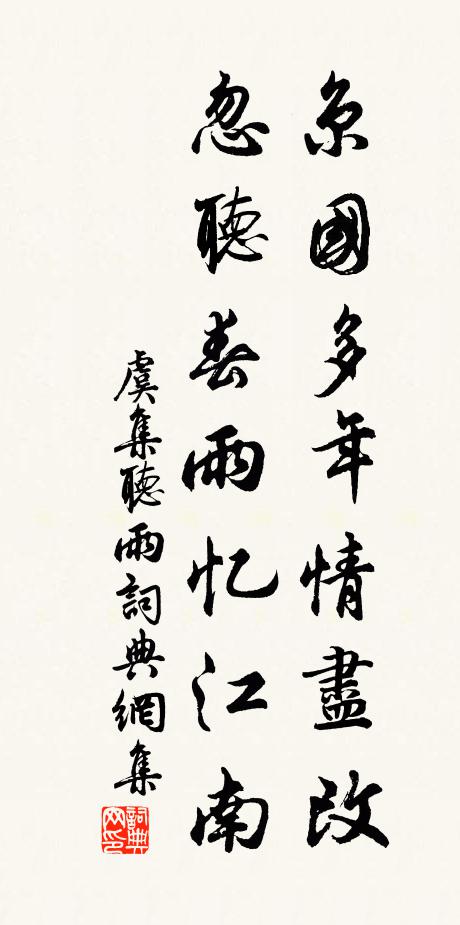 京國多年情盡改
忽聽春雨忆江南
虞集聽雨詞典網集
詞典網印